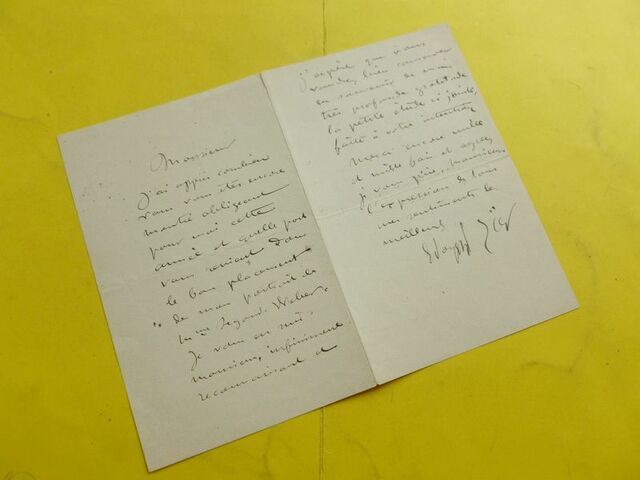 Monsieur
J'ai appris combien
vous vous êtes encore
montré obligeant
pour moi cette
année et quelle part
vous revient dans
le bon placement
de mon portrait de
Je vous en suis
monsieur, infiniment
reconnaissant et
j'espère que vous
voudrez bien conserver
en souvenir de ma
très profonde gratitude
la petite étude ci jointe,
faite à votre intention
Merci encore mille
et mille fois et agréez
je vous prie, monsieur
l'expression de tous
mes sentiments les
meilleurs